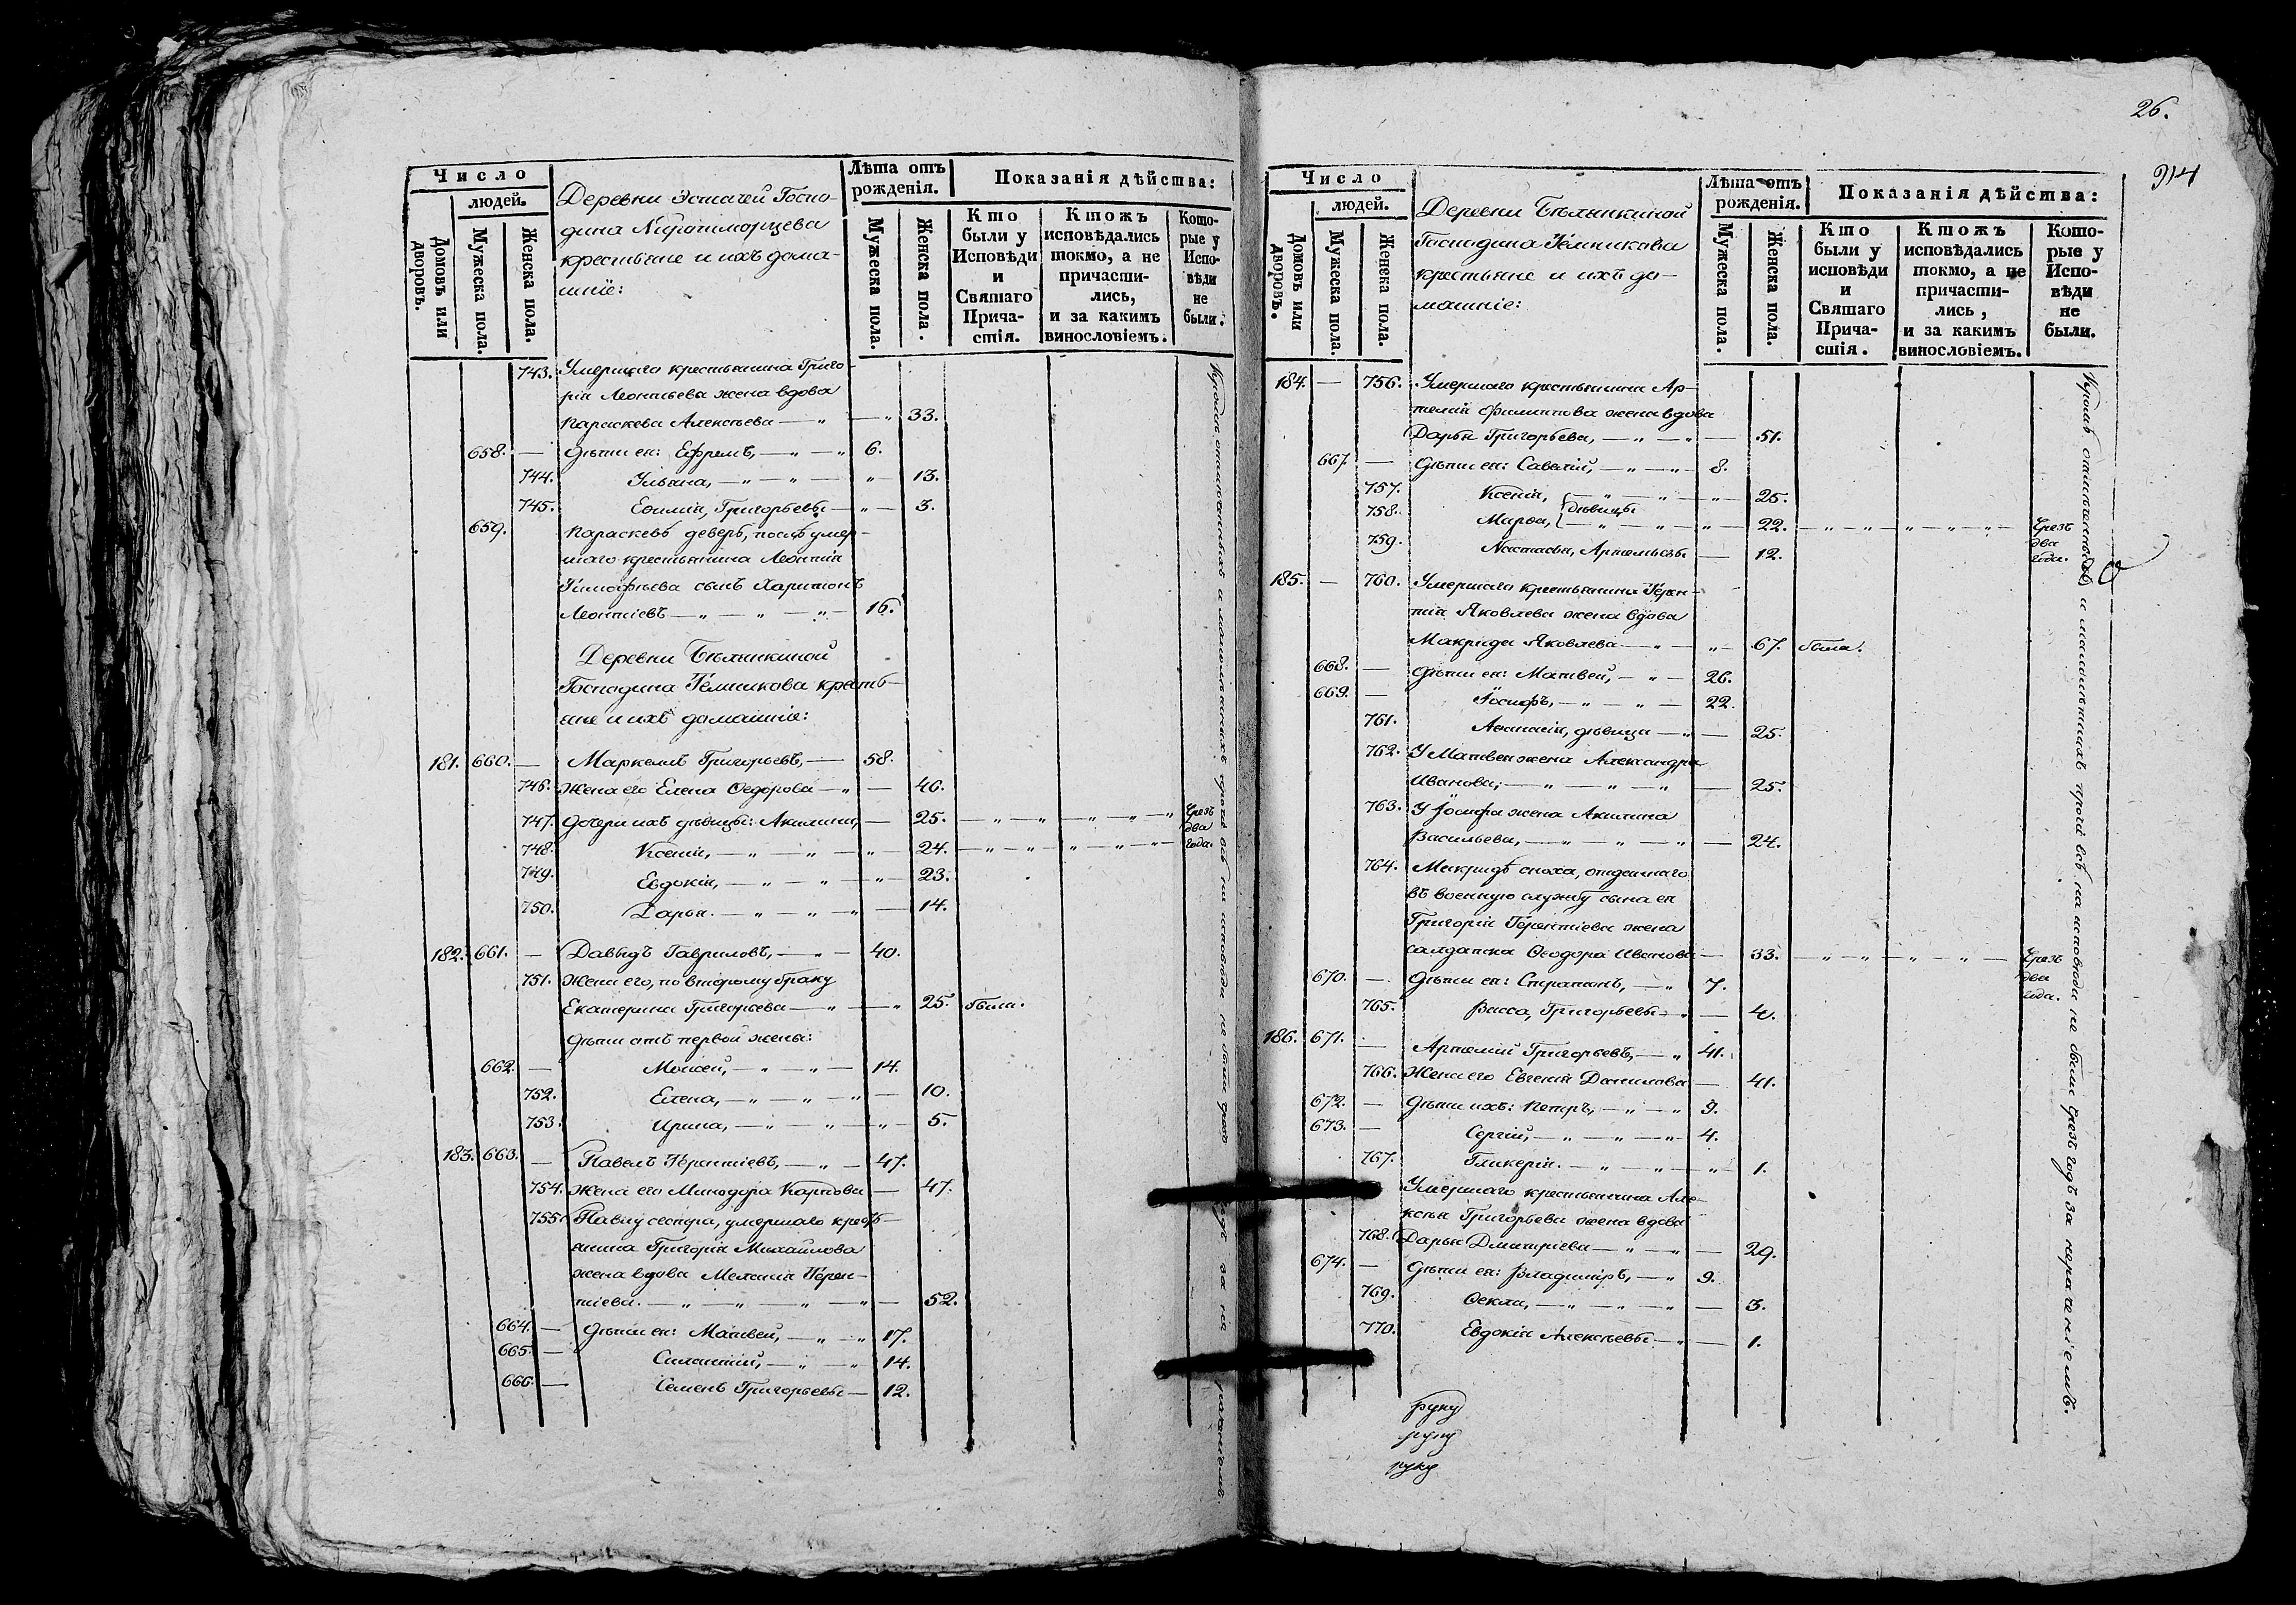 Число
людей.
Домовъ или дворовъ.
Мужеска пола.
Женска пола.
Деревни Госпо-
дина
крестьяне и ихъ дома-
шніе:
Лѣта отъ рожденія.
Мужеска пола.
Женска пола.
Показанія дѣйства:
Кто были у Исповѣди и Святаго Прича-стія.
Ктожъ исповѣдались токмо, а не причасти-лись, и за какимъ винословіемъ.
Кото-рые у Испо-вѣди не были.
743. Умершаго крестьянина Григо-
рія Леонтьева жена вдова
Параскева Алексѣева — „ — „ 33.
658. — Дѣти ея: Ефремъ, — „ — „ 6.
744. Ульяна, — „ — „ — „ — 13.
745. Евѳимія, Григорьевы — „ — 3.
659. Параскевѣ деверь, послѣ умер-
шаго крестьянина Леонтія
Тимофѣева сынъ Харитонъ
Леонтіевъ — „ — „ — „ — 16.
Деревни Бѣлянкиной
Господина Тёмникова кресть-
яне и ихъ домашніе:
181. 660. — Маркеллъ Григорьевъ, — 58.
746. Жена его Елена Ѳедорова — „ — 40.
747. Дочери ихъ дѣвицы: Акилина, — 25. — „ — „ — „ — „ — „ Чрезъ два года.
748. Ксенія, — „ — „ — „ — 24. — „ — „ „ — „ — „ —
749. Евдокія, — „ — „ — „ — 23.
750. Дарья. — „ — „ — „ — 14.
182. 661. — Давыдъ Гавриловъ, — „ — 40.
751. Жена его, по второму браку
Екатерина Григорьева — „ — „ 25. была.
Дѣти отъ первой жены:
662. — Моисей, — „ — „ — 14.
752. Елена, — „ — „ — „ — 10.
753. Ирина, — „ — „ — „ — 5.
183. 663. — Павелъ Терентіевъ, — „ — 47.
754. Жена его Минодора Карпова — 47.
755. Павлу сестра, умершаго кресть-
янина Григорія Михайлова
жена вдова Меланія Терен-
тіева. — „ — „ — „ — „ — 52.
664. — Дѣти ея: Матвей, — „ — „ 17.
665. — — „ — „ 14.
666. — Семенъ Григорьевы — 12.
26.
914
Число
людей.
Домовъ или дворовъ.
Мужеска пола.
Женска пола.
Деревни Бѣлянкиной
Господина Тёмникова
крестьяне и ихъ до-
машніе:
Лѣта отъ рожденія.
Мужеска пола.
Женска пола.
Показанія дѣйства:
Кто были у исповѣди и Святаго Прича-стія.
Ктожъ исповѣдались токмо, а не причасти-лись, и за какимъ винословіемъ.
Кото-рые у Испо-вѣди не были.
184. — 756. Умершаго крестьянина Ар-
темія Филиппова жена вдова
Дарья Григорьева, — „ — „ — 51.
667. — Дѣти ея: Савелій, — „ — „ 8.
757. Ксенія, — „ — „ — „ — 25.
дѣвицы
758. Марѳа, — „ — „ — „ — 22. — „ — „ — „ — „ — „ — Чрезъ два года.
759. Настасья, Артемьевы — 12.
185. — 760. Умершаго крестьянина Терен-
тія Яковлева жена вдова
Макрида Яковлева — „ — „ — 67. была.
668. — Дѣти ея: Матвей, — „ — 26.
669. — Іосифъ, — „ — „ — 22.
761. Аѳанасія, дѣвица — „ — 25.
762. У Матвея жена Александра
Иванова; — „ — „ — „ — 25.
763. У Іосифа жена Акилина
Васильева, — „ — „ — „ — 24.
764. Макридѣ сноха, отданнаго
въ военную службу сына ея
Григорія Терентіева жена
салдатка Ѳеодора Иванова — 33. — „ — „ — „ — „ — Чрезъ два года.
670. — Дѣти ея: Спиридонъ, — „ 7.
765. Васса, Григорьевы — „ — 4.
186. 671. — Артемій Григорьевъ, — „ 41.
766. Жена его Евгенія Данилова — 41.
672. — Дѣти ихъ: Петръ, — „ — „ 9.
673. — Сергій, — „ — „ — „ 4.
767. Гликерія. — „ — „ — „ 1.
Умершаго крестьянина Але-
ксѣя Григорьева жена вдова
768. Дарья Дмитріева — „ — „ — 29.
674. — Дѣти ея: Владиміръ, — „ 9.
769. Ѳекла, — „ — „ — „ — 3.
770. Евдокія Алексѣевы — „ — 1.
руку
руку
руку
и малолѣтнихъ прочіи всѣ на исповѣди не были чрезъ годъ за нераченіемъ.